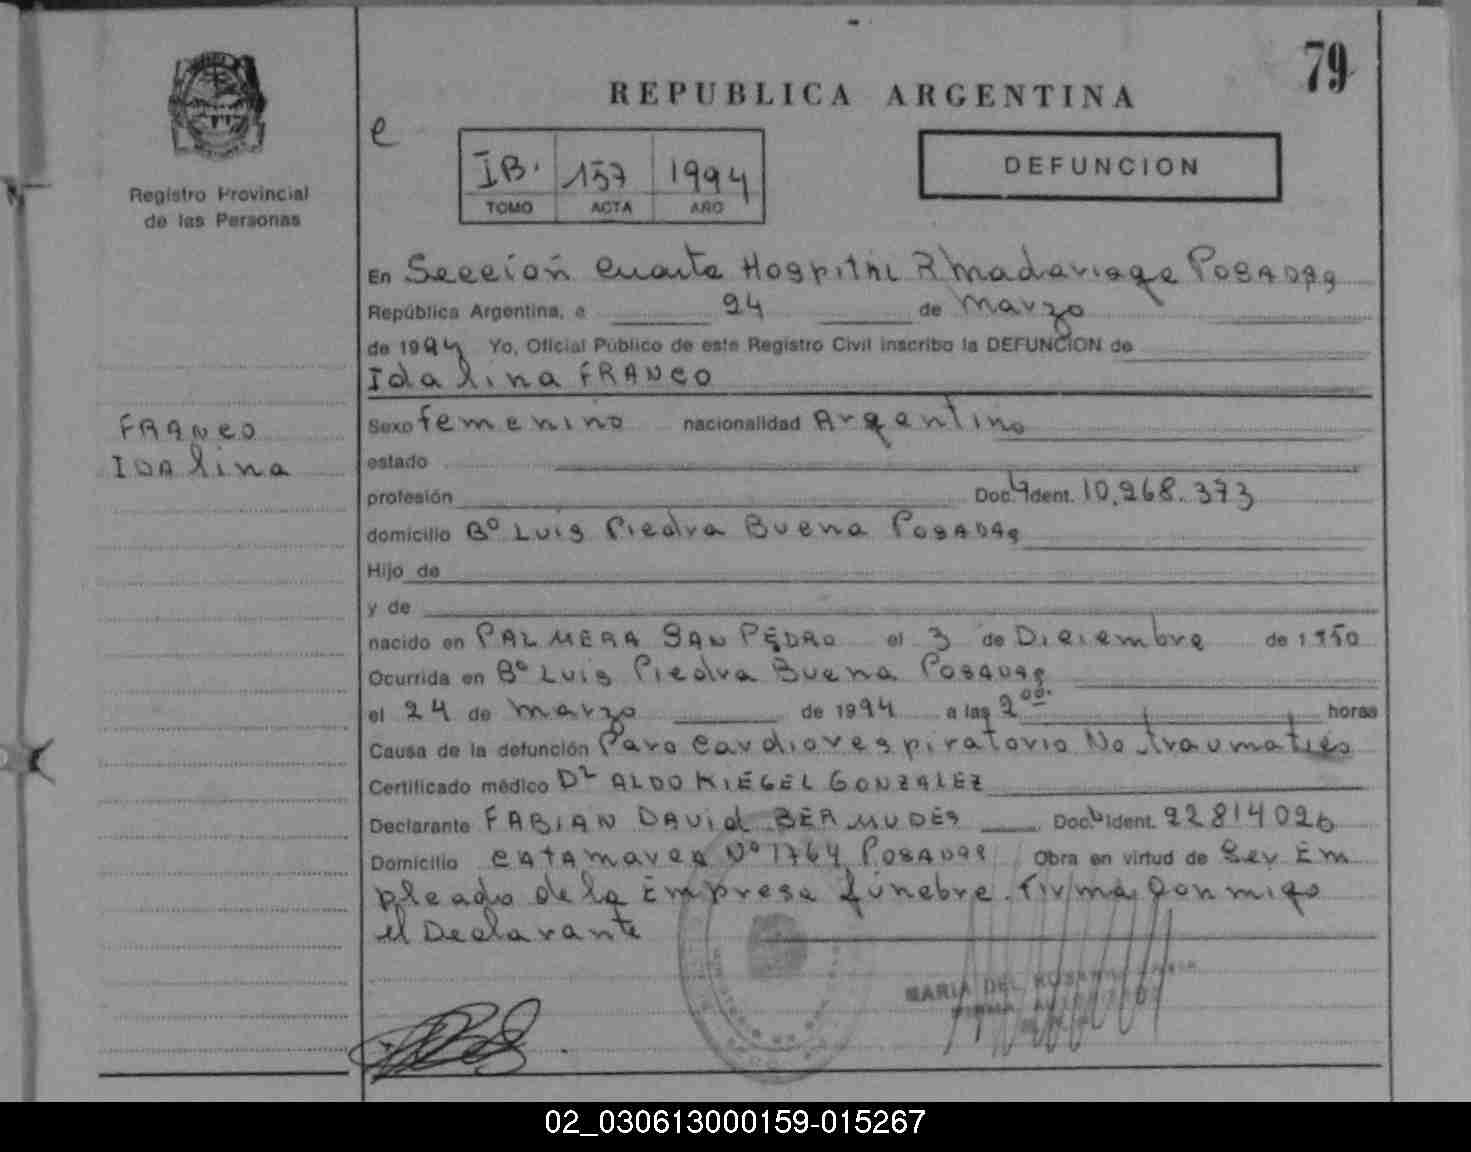 79
REPUBLICA ARGENTINA
e
IB. 157 1994
TOMO ACTA AÑO
DEFUNCION
Registro Provincial
de las Personas
En Sección Cuarta Hospital R Madariaga POSADAS
República Argentina, a 24 de Marzo
de 1994 Yo, Oficial Público de este Registro Civil inscribo la DEFUNCION de
Idalina FRANCO
FRANCO
IDAlina
Sexo femenino nacionalidad Argentino
estado
profesión Doc. Ident. 10.268.373
domicilio Bº Luis Piedra Buena POSADAS
Hijo de
y de
nacido en PALMERA SAN PEDRO el 3 de Diciembre de 1950
Ocurrida en Bº Luis Piedra Buena POSADAS
el 24 de Marzo de 1994 a las 2 00. horas
Causa de la defunción Paro Cardiorespiratorio No traumatico
Certificado médico Dr ALDO KIEGEL GONZALEZ
Declarante FABIAN DAVid BERMUDES Doc. Ident. 22814026
Domicilio CATAMARCA Nº 1764 POSADAS Obra en virtud de Ser Em
pleado de la Empresa fúnebre. Firma Conmigo
el Declarante
MARIA DEL
02_030613000159-015267